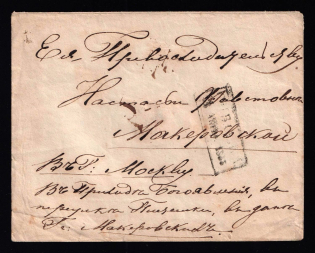 Ея Превосходительству
Настасьи
Макеровской
Въ Г: Москву.
Въ Приходѣ Богоявленія, въ
переулкѣ въ домѣ
Г: Макеровскихъ.